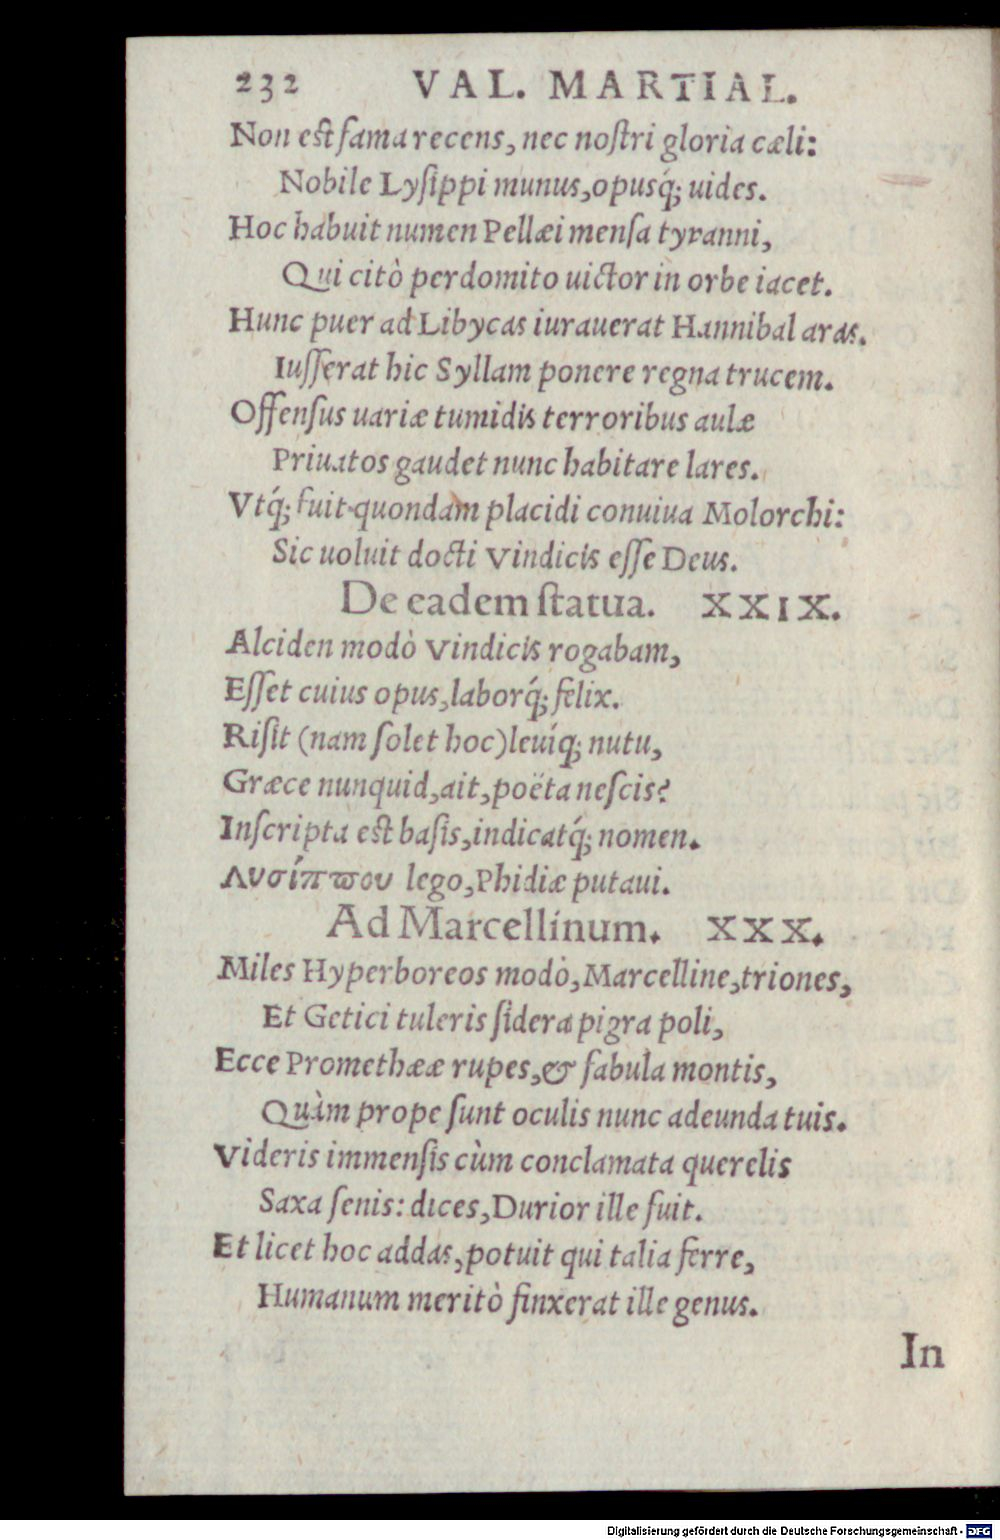 232 VAL. MARTIAL.
Non est fama recens, nec nostri gloria cæli:
Nobile Lysippi munus, opusq́; uides.
Hoc habuit numen Pellæi mensa tyranni,
Qui citò perdomito uictor in orbe iacet.
Hunc puer ad Libycas iurauerat Hannibal aras.
Iusserat hic Syllam ponere regna trucem.
Offensus uariæ tumidis terroribus aulæ
Priuatos gaudet nunc habitare lares.
Vtq́; fuit quondam placidi conuiua Molorchi:
Sic uoluit docti Vindicis esse Deus.
De eadem statua. XXIX.
Alciden modò Vindicis rogabam,
Esset cuius opus, laborq́; felix.
Risit (nam solet hoc) leuíq; nutu,
Græce nunquid, ait, poëta nescis?
Inscripta est basis, indicatq́; nomen.
Λυσίπϖου lego, Phidiæ putaui.
Ad Marcellinum. XXX.
Miles Hyperboreos modò, Marcelline, triones,
Et Getici tuleris sidera pigra poli,
Ecce Promethææ rupes, & fabula montis,
Quàm prope sunt oculis nunc adeunda tuis.
Videris immensis cùm conclamata querelis
Saxa senis: dices, Durior ille fuit.
Et licet hoc addas, potuit qui talia ferre,
Humanum meritò finxerat ille genus.
In
Digitalisierung gefördert durch die Deutsche Forschungsgemeinschaft - DFG